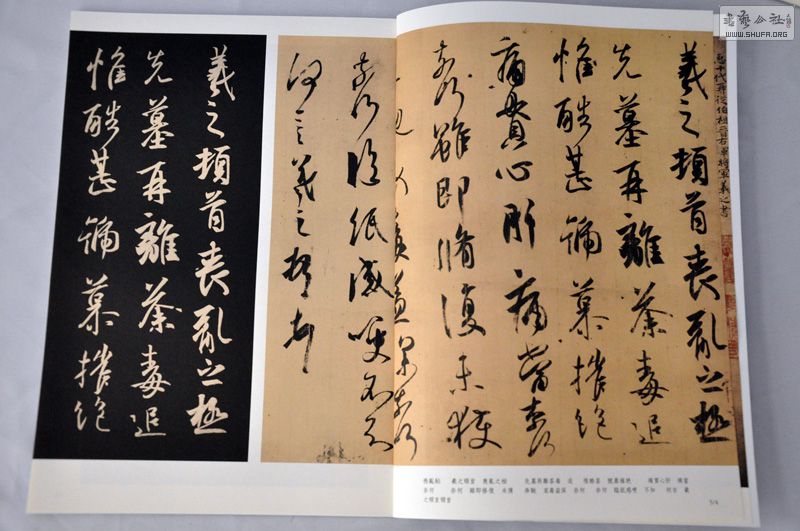 書藝公社
WWW.SHUFA.ORG
十代再從伯祖晉右軍將軍羲之書
羲之頓首喪亂之極
先墓再離荼毒追
惟酷甚號慕摧絕
痛貫心肝痛當奈何
奈何雖即脩復未獲
奈何臨紙感哽不知
何言羲之頓首
羲之頓首喪亂之極
先墓再離荼毒追
惟酷甚號慕摧絕
喪亂帖 羲之頓首 喪亂之極 先墓再離荼毒 追 惟酷甚 號慕摧絕 痛貫心肝 痛當
奈何 奈何 雖即脩復 未獲 奔馳 哀毒益深 奈何 奈何 臨紙感哽 不知 何言 羲
之頓首頓首